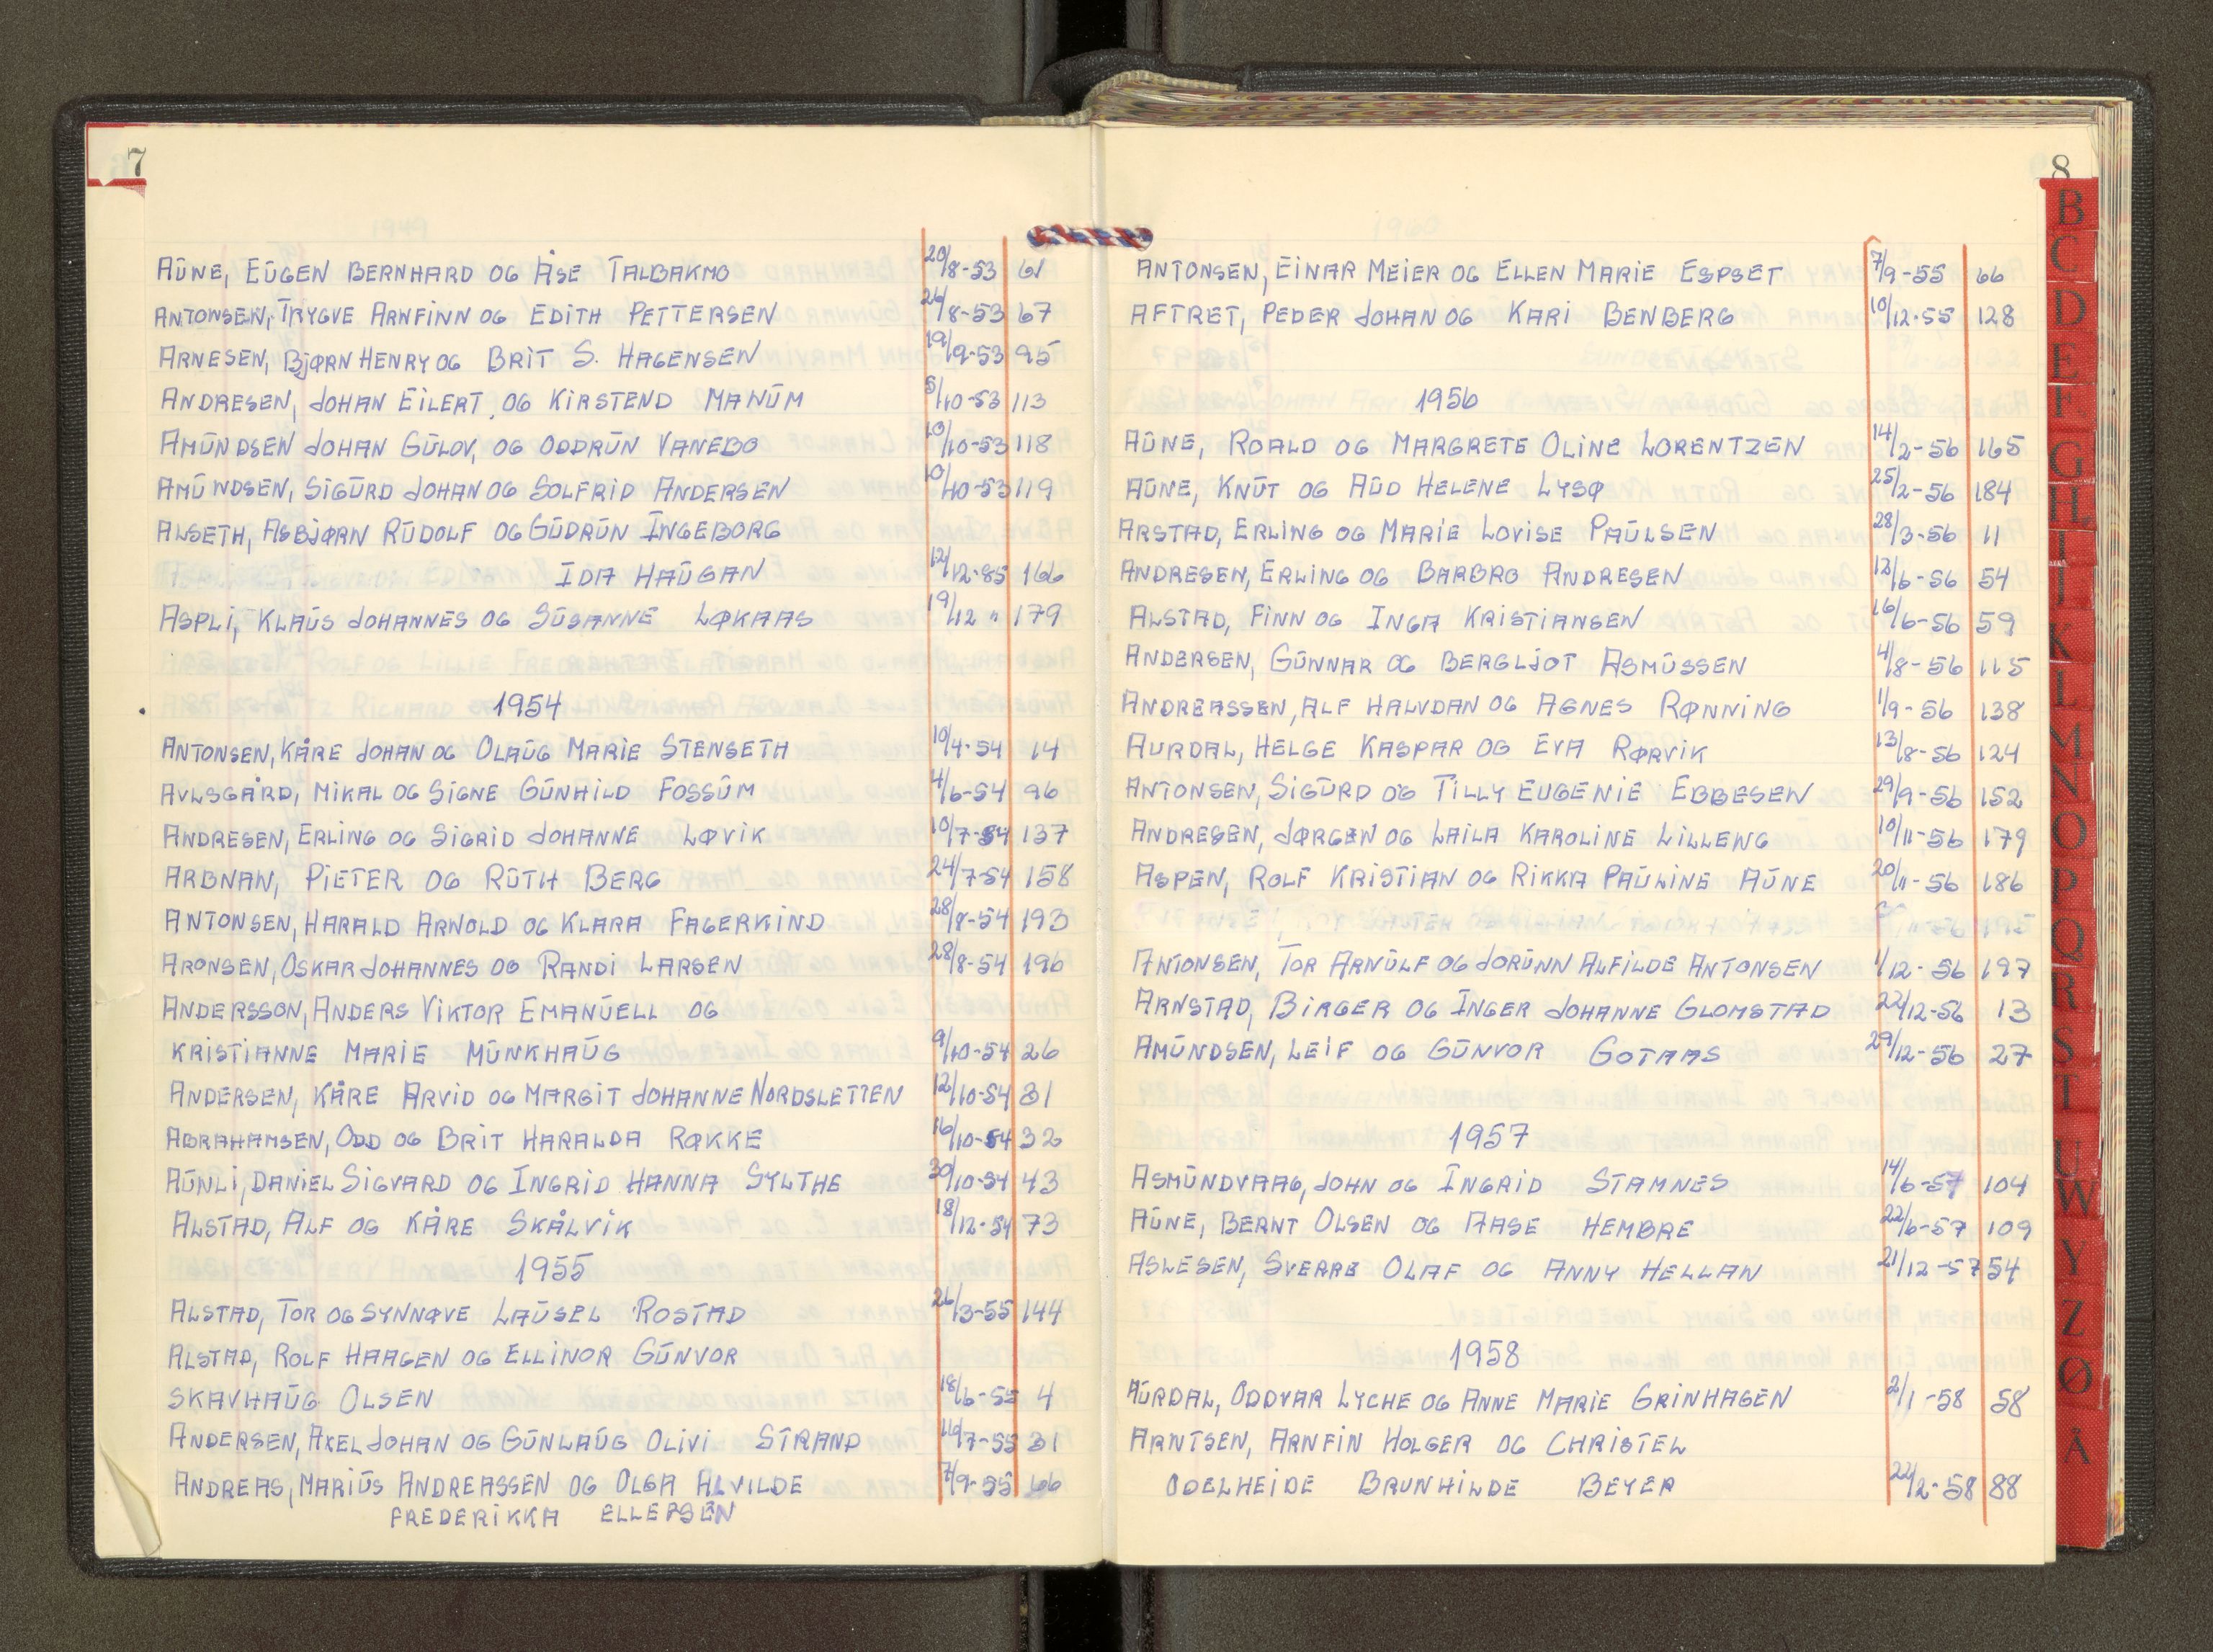 7
AŪNE, EŪGEN BERNHARD OG ÅSE TALBAKMO 20/8-53 61
ANTONSEN, TRYGVE ARNFINN OG EDITH PETTERSEN 26/8-53 67
ARNESEN, BJØRN HENRY OG BRIT S. HAGENSEN 19/9-53 95
ANDRESEN, JOHAN EILERT, OG KIRSTEND MANŪM 5/10-53 113
AMŪNDSEN JOHAN GŪLOV, OG ODDRŪN VANEBO 10/10-53 118
AMŪNDSEN, SIGŪRD JOHAN OG SOLFRID ANDERSEN 10/10-53 119
ALSETH, ASBJØRN RŪDOLF OG GŪDRŪN INGEBORG
IDA HAŪGAN 12/12-85 166
ASPLI, KLAŪS JOHANNES OG SŪSANNE LØKAAS 19/12 " 179
1954
ANTONSEN, KÅRE JOHAN OG OLAŪG MARIE STENSETH 10/4-54 14
AVLSGÅRD, MIKAL OG SIGNE GŪNHILD FOSSŪM 4/6-54 96
ANDRESEN, ERLING OG SIGRID JOHANNE LØVIK 10/7-54 137
ARBNAN, PIETER OG RŪTH BERG 24/7-54 158
ANTONSEN, HARALD ARNOLD OG KLARA FAGERKIND 28/8-54 193
ARONSEN, OSKAR JOHANNES OG RANDI LARSEN 28/8-54 196
ANDERSSON, ANDERS VIKTOR EMANŪELL OG
KRISTIANNE MARIE MŪNKHAŪG 9/10-54 26
ANDERSEN, KÅRE ARVID OG MARGIT JOHANNE NORDSLETTEN 12/10-54 31
ABRAHAMSEN, ODD OG BRIT HARALDA RØKKE 16/10-54 32
AŪNLI, DANIEL SIGVARD OG INGRID HANNA SYLTHE 30/10-54 43
ALSTAD, ALF OG KÅRE SKÅLVIK 18/12-54 73
1955
ALSTAD, TOR OG SYNNØVE LAŪSEL ROSTAD 26/3-55 144
ALSTAD, ROLF HAAGEN OG ELLINOR GŪNVOR
SKAVHAŪG OLSEN 18/6-55 4
ANDERSEN, AXEL JOHAN OG GŪNLAŪG OLIVI STRAND 7-55 31
ANDREAS, MARIŪS ANDREASSEN OG OLGA ALVILDE 7/9-55 66
FREDERIKKA ELLEFSEN
8
ANTONSEN, EINAR MEIER OG ELLEN MARIE ESPSET 7/9-55 66
AFTRET, PEDER JOHAN OG KARI BENBERG 10/12-55 128
1956
AŪNE, ROALD OG MARGRETE OLINE LORENTZEN 14/2-56 165
AŪNE, KNŪT OG AŪD HELENE LYSØ 25/2-56 184
ARSTAD, ERLING OG MARIE LOVISE PAŪLSEN 28/3-56 11
ANDRESEN, ERLING OG BARBRO ANDRESEN 12/6-56 54
ALSTAD, FINN OG INGA KRISTIANSEN 16/6-56 59
ANDERSEN, GŪNNAR OG BERGLJOT ASMŪSSEN 4/8-56 115
ANDREASSEN, ALF HALVDAN OG AGNES RØNNING 1/9-56 138
AURDAL, HELGE KASPAR OG EVA RØRVIK 13/8-56 124
ANTONSEN, SIGŪRD OG TILLY EUGENIE EBBESEN 29/9-56 152
ANDRESEN, JØRGEN OG LAILA KAROLINE LILLENG 10/11-56 179
ASPEN, ROLF KRISTIAN OG RIKKA PAŪLINE AŪNE 20/11-56 186
ANTONSEN, TOR ARNŪLF OG JORŪNN ALFILDE ANTONSEN 1/12-56 197
ARNSTAD, BIRGER OG INGER JOHANNE GLOMSTAD 22/12-56 13
AMŪNDSEN, LEIF OG GŪNVOR GOTAAS 29/12-56 27
1957
ASMŪNDVAAG, JOHN OG INGRID STAMNES 14/6-57 104
AŪNE, BERNT OLSEN OG AASE HEMBRE 22/6-57 109
ASLESEN, SVERRE OLAF OG ANNY HELLAN 21/12-57 54
1958
AŪRDAL, ODDVAR LYCHE OG ANNE MARIE GRINHAGEN 2/1-58 58
ARNTSEN, ARNFIN HOLGER OG CHRISTEL
ODELHEIDE BRUNHILDE BEYER 22/2-58 88
B
C
D
E
F
G
H
I
J
K
L
M
N
O
P
Q
R
S
T
U
W
Y
Z
Ø
Å